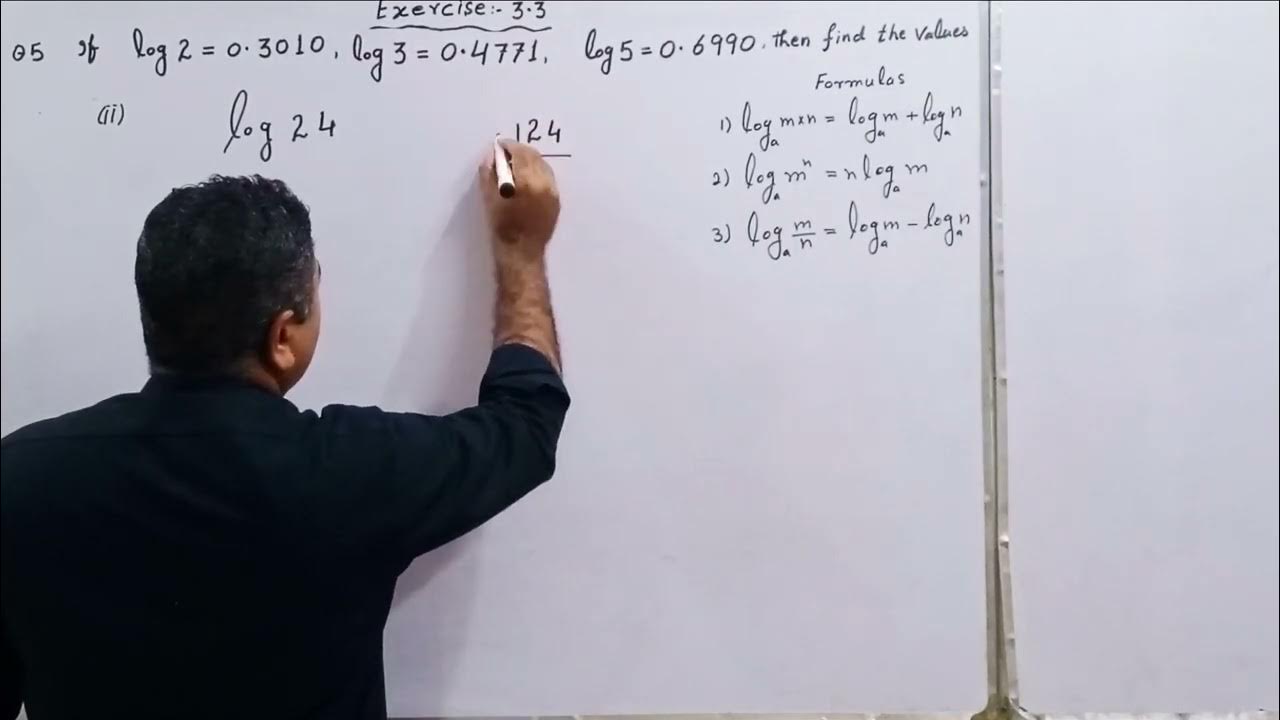 Exercise:- 3.3
Q5 If log 2 = 0.3010, log 3 = 0.4771, log 5 = 0.6990, then find the values
Formulas
(ii) log 24
24
1) logₐ m×n = logₐ m + logₐ n
2) logₐ mⁿ = n logₐ m
3) logₐ m/n = logₐ m − logₐ n